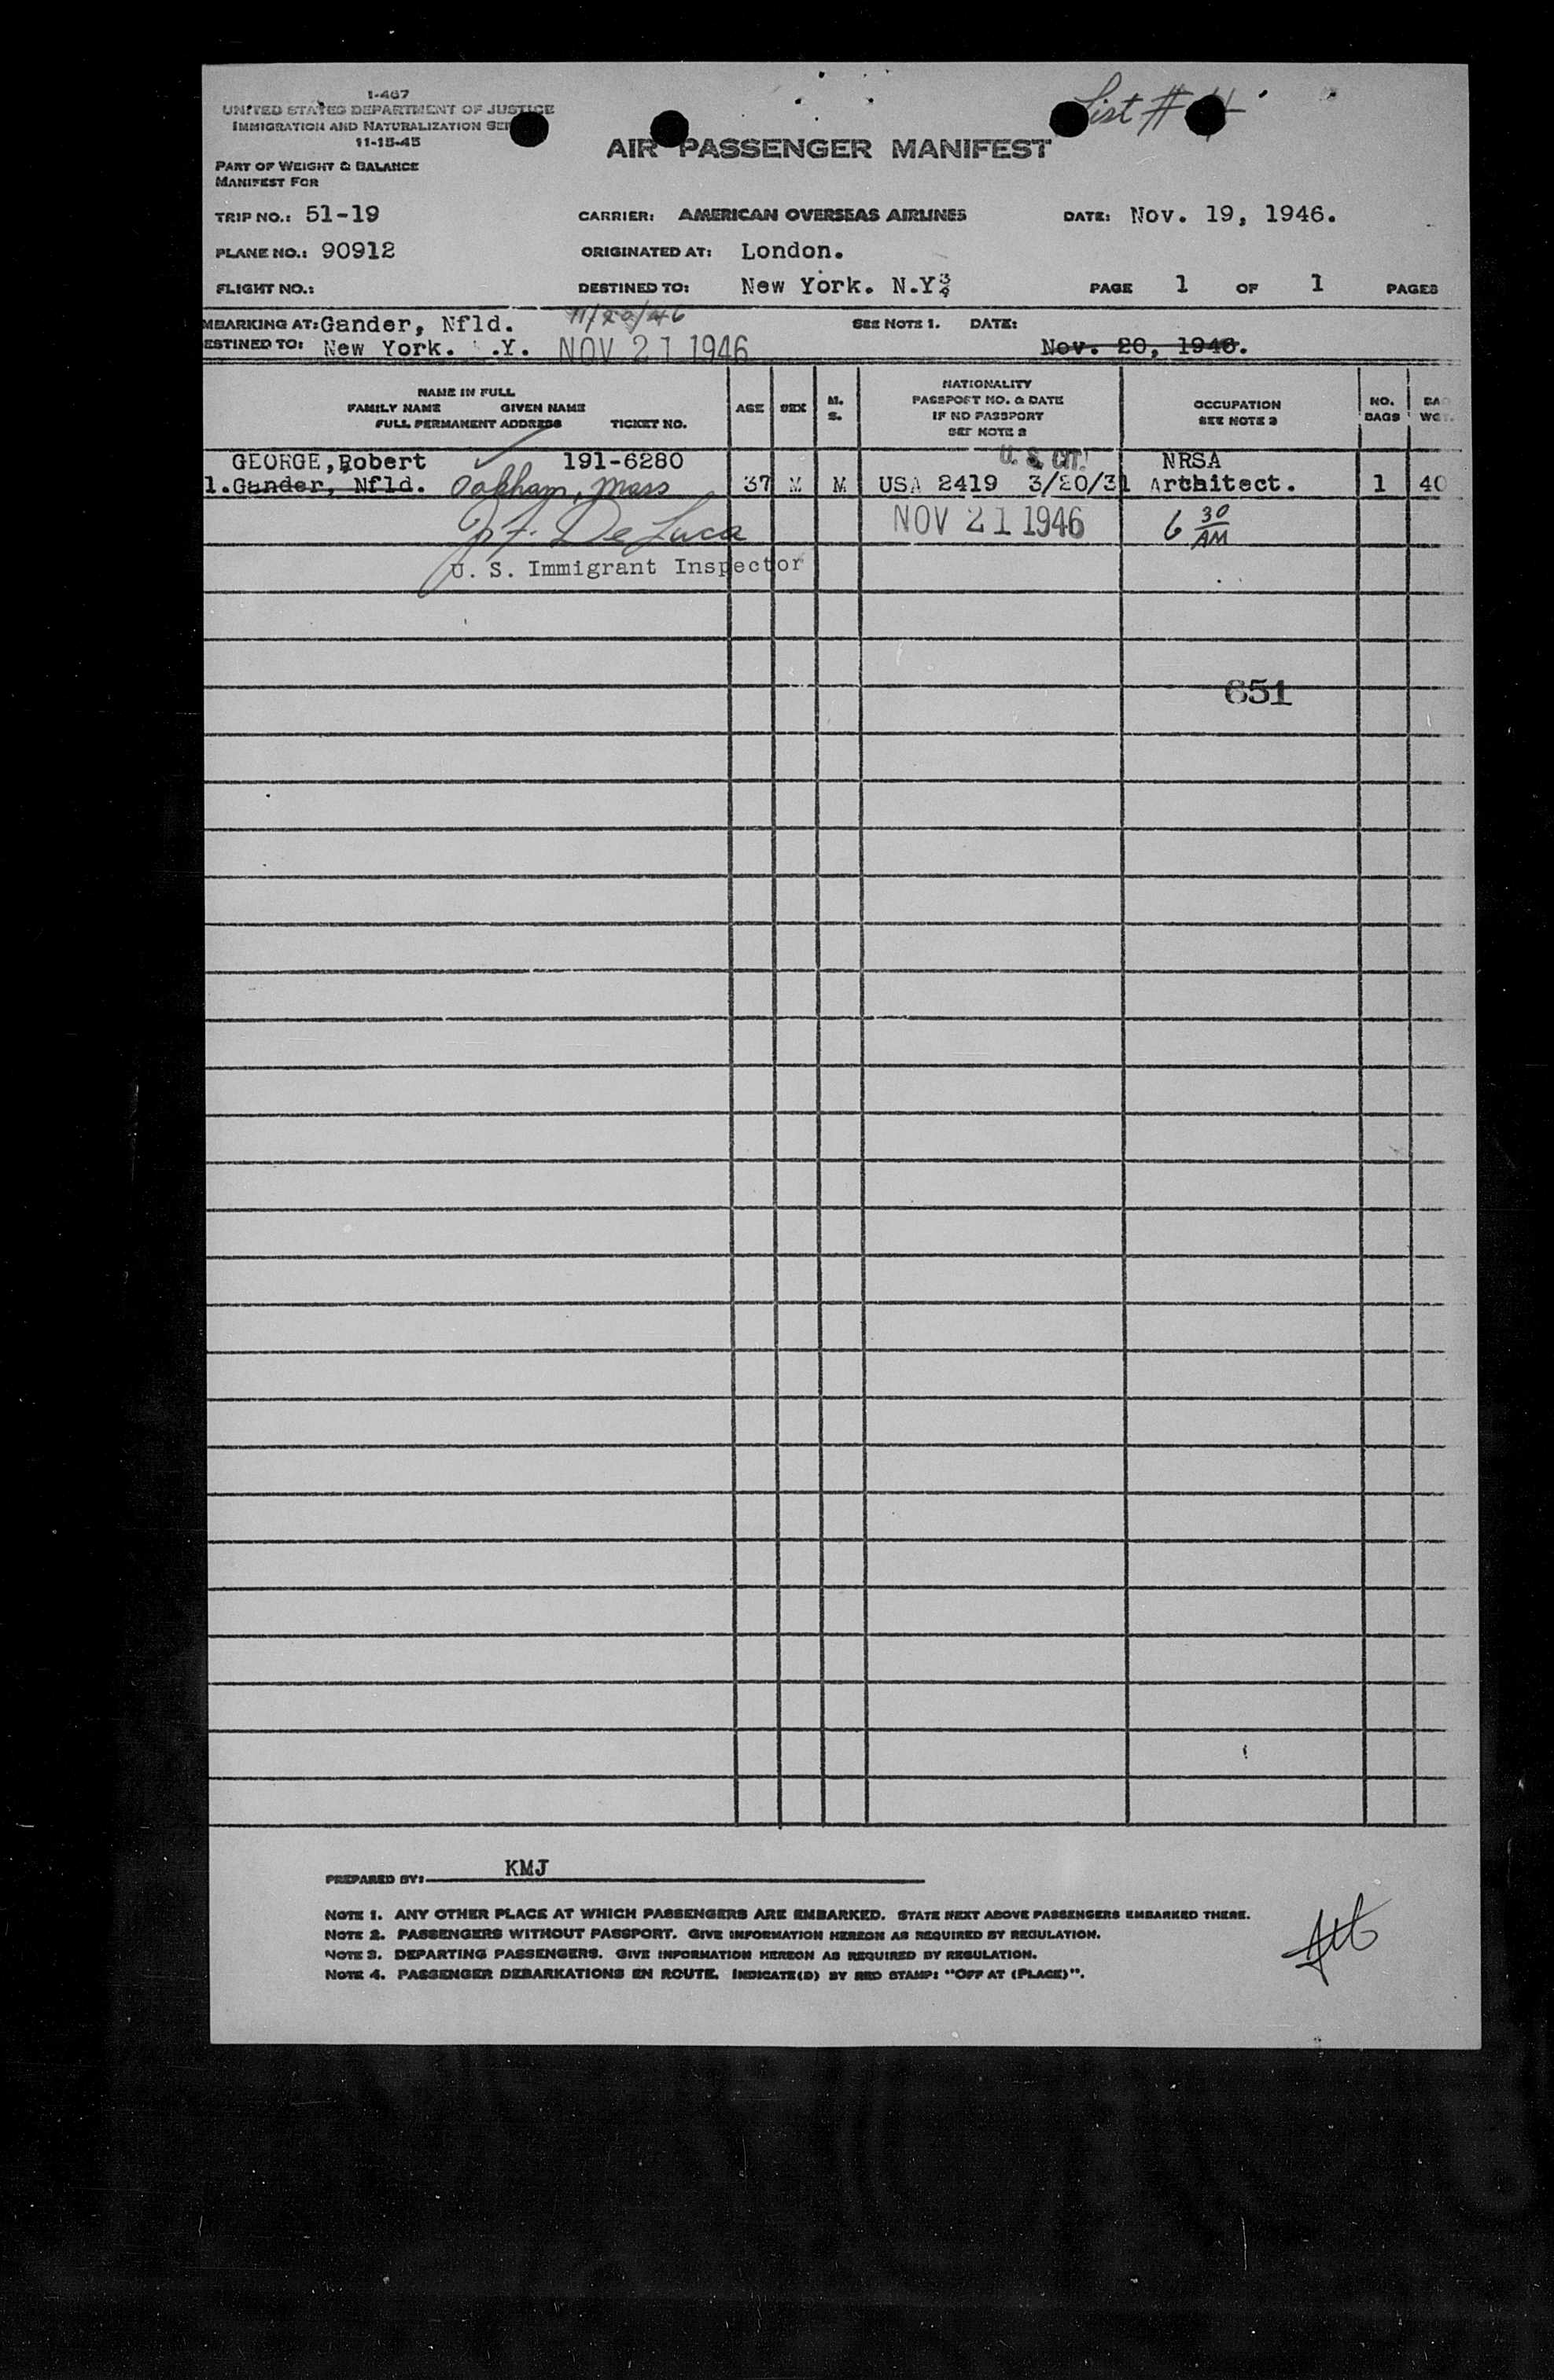 I-467
UNITED STATES DEPARTMENT OF JUSTICE
IMMIGRATION AND NATURALIZATION SER
11-15-45
List #
AIR PASSENGER MANIFEST
PART OF WEIGHT & BALANCE
MANIFEST FOR
TRIP NO.: 51-19 CARRIER: AMERICAN OVERSEAS AIRLINES DATE: Nov. 19, 1946.
PLANE NO.: 90912 ORIGINATED AT: London.
FLIGHT NO.: DESTINED TO: New York. N.Y. PAGE 1 OF 1 PAGES
MBARKING AT: Gander, Nfld. 11/20/46 SEE NOTE 1. DATE:
ESTINED TO: New York. .Y. NOV 21 1946 Nov. 20, 1946.
NAME IN FULL
FAMILY NAME GIVEN NAME
FULL PERMANENT ADDRESS TICKET NO.
AGE SEX M. S.
NATIONALITY
PASSPORT NO. & DATE
IF NO PASSPORT
SEE NOTE 2
OCCUPATION
SEE NOTE 3
NO. BAGS
BAG WGT.
GEORGE, Robert 191-6280 U. S. CIT. NRSA
1. Gander, Nfld. Oakham, Mass 37 M M USA 2419 3/20/31 Architect. 1 40
J. F. De Luca NOV 21 1946 6 30 AM
U. S. Immigrant Inspector
651
PREPARED BY: KMJ
NOTE 1. ANY OTHER PLACE AT WHICH PASSENGERS ARE EMBARKED. STATE NEXT ABOVE PASSENGERS EMBARKED THERE.
NOTE 2. PASSENGERS WITHOUT PASSPORT. GIVE INFORMATION HEREON AS REQUIRED BY REGULATION.
NOTE 3. DEPARTING PASSENGERS. GIVE INFORMATION HEREON AS REQUIRED BY REGULATION.
NOTE 4. PASSENGER DEBARKATIONS EN ROUTE. INDICATE(D) BY RED STAMP: "OFF AT (PLACE)".